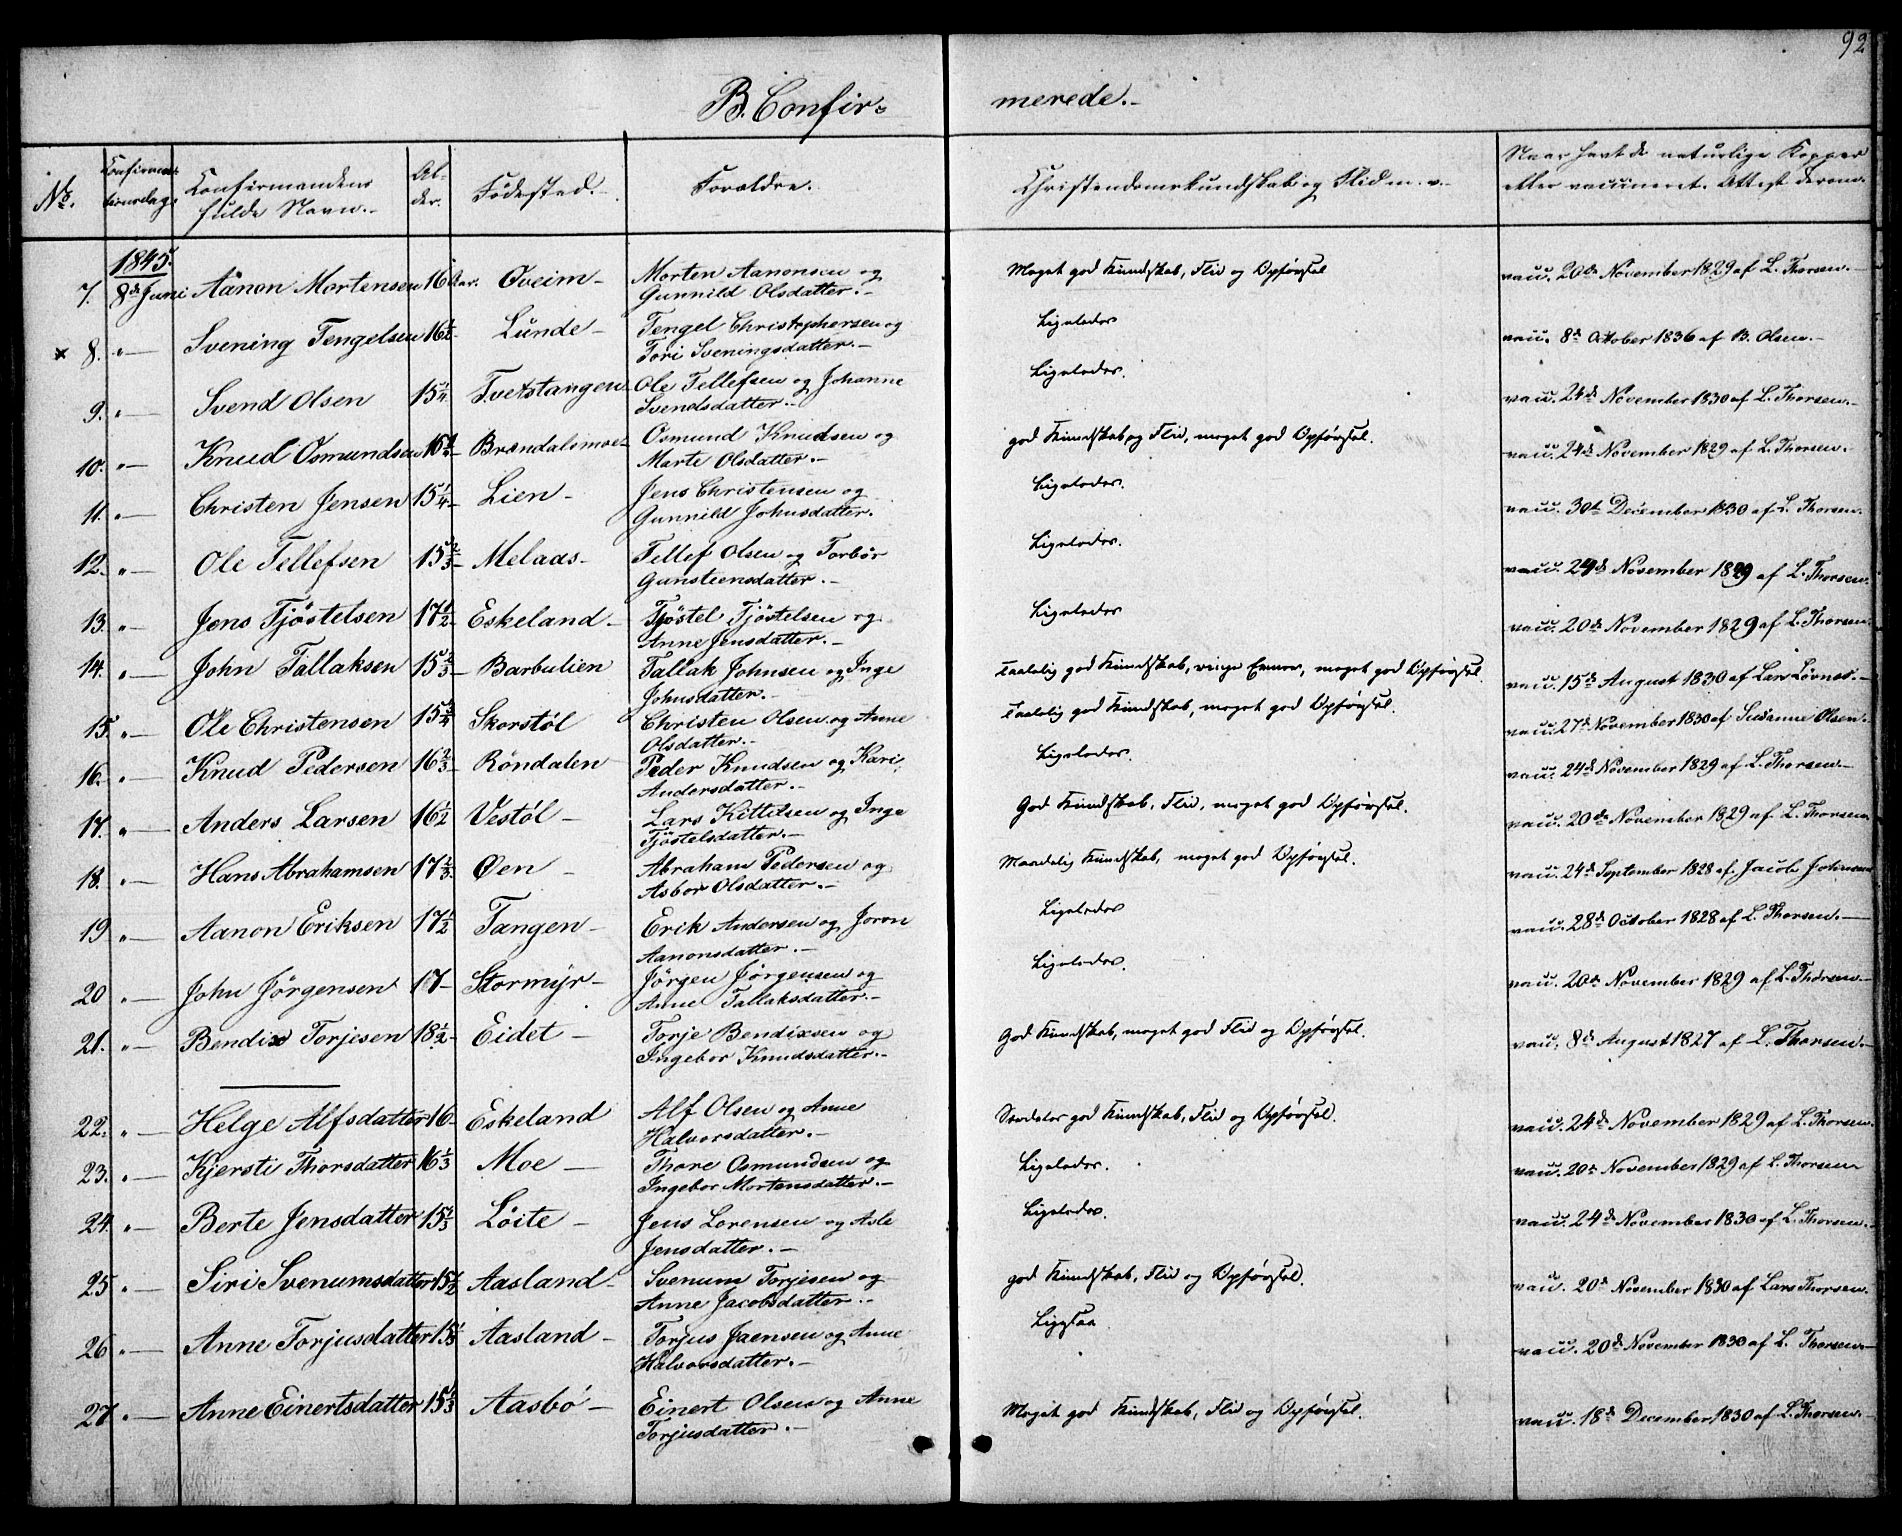 92
B. Confir= merede.-
No. Confirma-tionsdag. Konfirmandens fulde Navn.- Al-der. Födested.- Forældre. Christendomskundskab og Flid m. v.- Naar havt de naturlige Kopper eller vaccineret. Attest derom.
1845.
7. 8de Juni Aanon Mortensen 16 Aar. Øveim- Morten Aanonsen og Gunnild Olsdatter.- Meget god Kundskab, Flid og Opførsel vacc. 20de November 1829 af L. Thorsen.-
x 8. "— Svening Tengelsen 16½- Lunde- Tengel Christophersen og Tori Sveningsdatter.- Ligeledes vacc. 8de October 1836 af B. Olsen.-
9. "— Svend Olsen 15¼- Tvetstangen Ole Tellefsen og Johanne Svendsdatter.- Ligeledes. vacc. 24de November 1830 af L. Thorsen.-
10. "— Knud Osmundsen 16½- Brændalsmoe- Osmund Knudsen og Marte Olsdatter.- god Kundskab og Flid, meget god Opførsel. vacc. 24de November 1829 af L. Thorsen.-
11. "— Christen Jensen 15¼- Lien- Jens Christensen og Gunnild Johnsdatter. Ligeledes. vacc. 30te December 1830 af L. Thorsen.
12. "— Ole Tellefsen 15⅔- Melaas- Tellef Olsen og Torbör Gunsteensdatter.- Ligeledes. vacc. 24de November 1829 af L. Thorsen.
13. "— Jens Tjöstelsen 17½- Eskeland- Tjöstel Tjöstelsen og Anne Jensdatter.- Ligeledes vacc. 20de November 1829 af L. Thorsen.
14. "— John Tallaksen 15⅔- Barbulien Tallak Johnsen og Inge Johnsdatter.- Taalelig god Kundskab, ringe Evner, meget god Opførsel. vacc. 15de August 1830 af Lars Lövnes.-
15. "— Ole Christensen 15¾ Skorstöl Christen Olsen og Anne Olsdatter.- Taalelig god Kundskab, meget god Opførsel. vacc. 27de November 1830 af Susanne Olsen.
16. "— Knud Pedersen 16⅔- Röndalen Peder Knudsen og Kari Andersdatter.- Ligeledes. vacc. 24de November 1829 af L. Thorsen.-
17. "— Anders Larsen 16½ Vestöl- Lars Kittilsen og Inge Tjöstelsdatter.- God Kundskab, Flid, meget god Opførsel. vacc. 20de November 1829 af L. Thorsen.
18. "— Hans Abrahamsen 17⅓ Øen- Abraham Pedersen og Asbor Olsdatter.- Maadelig Kundskab, meget god Opførsel. vacc. 24de September 1828 af Jacob
19 "— Aanon Eriksen 17½ Tangen- Erik Andersen og Joron Aanonsdatter.- Ligeledes vacc. 28de October 1828 af L. Thorsen.-
20 "— John Jörgensen 17- Stormyr- Jörgen Jörgensen og Anne Tallaksdatter.- Ligeledes. vacc. 20de November 1829 af L. Thorsen.-
21. "— Bendix Torjesen 18½- Eidet- Torje Bendixsen og Ingebor Knudsdatter.- God Kundskab, meget god Flid og Opførsel. vacc. 8de August 1827 af L. Thorsen.-
22. "— Helge Alfsdatter 16- Eskeland Alf Olsen og Anne Halvorsdatter.- Særdeles god Kundskab, Flid og Opførsel. vacc. 24de November 1829 af L. Thorsen.
23. "— Kjersti Thorsdatter 16⅓ Moe- Thore Osmundsen og Ingebor Mortensdatter.- Ligeledes. vacc. 20de November 1829 af L. Thorsen
24. "— Berte Jensdatter 15⅓ Löite- Jens Lorensen og Asle Jensdatter.- Ligeledes. vacc. 24de November 1830 af L. Thorsen.-
25 "— Siri Svenumsdatter 15½ Aasland- Svenum Torjesen og Anne Jacobsdatter.- god Kundskab, Flid og Opførsel. vacc. 20de November 1830 af Lars Thorsen.
26 "— Anne Torjusdatter 15⅓ Aasland- Torjus Jaensen og Anne Halvorsdatter.- Ligesaa vacc. 20de November 1830 af L. Thorsen.-
27 "— Anne Einertsdatter 15⅓ Aasbö- Einert Olsen og Anne Torjusdatter.- Meget god Kundskab, Flid og Opførsel. vacc. 18de December 1830 af L. Thorsen.-